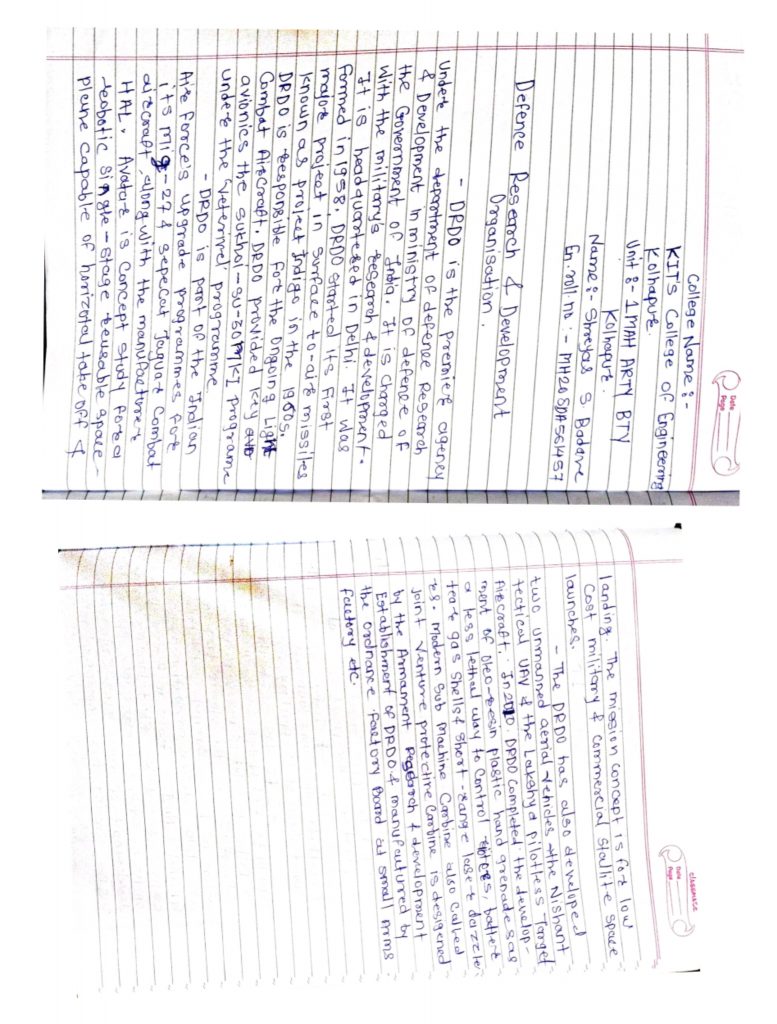 Date
Page
College Name:-
KIT's College of Engineering
Kolhapur.
Unit:- 1 MAH ARTY BTY
Kolhapur.
Name:- Shreyas S. Badave
En. roll. no:- MH20SDA561457
Defence Research & Development
Organisation.
- DRDO is the premier agency
under the department of defence Research
& Development in ministry of defence of
the Government of India. It is charged
with the military's research & development.
It is headquartered in Delhi. It was
formed in 1958. DRDO started its first
major project in surface-to-air missiles
known as project Indigo in the 1960s.
DRDO is responsible for the ongoing Light
Combat Aircraft. DRDO provided key
avionics the sukhoi-su-30MKI programe
under the "vetrivel" programme
- DRDO is part of the Indian
Air force's upgrade programmes for
its mig-27 & sepecat Jaguar Combat
aircraft, along with the manufacturer
HAL. Avatar is concept study for a
robotic single-stage reusable space-
plane capable of horizotal take off &
classmate
Date
Page
landing. The mission concept is for low
cost military & commercial stallite space
launches.
- The DRDO has also developed
two unmanned aerial vehicles - the Nishant
tectical UAV & the Lakshya pilotless Target
Aircraft. In 2010. DRDO completed the develop-
ment of Oleo-resin plastic hand grenades as
a less lethal way to control batter
tear gas shells & short-range laser dazzler
rs. Modern Sub Machine Carbine also called
joint Venture protective Carbine is desigened
by the Armament Research & development
Establishment of DRDO & manufactured by
the ordnance factory Board at small Arms
factory etc.